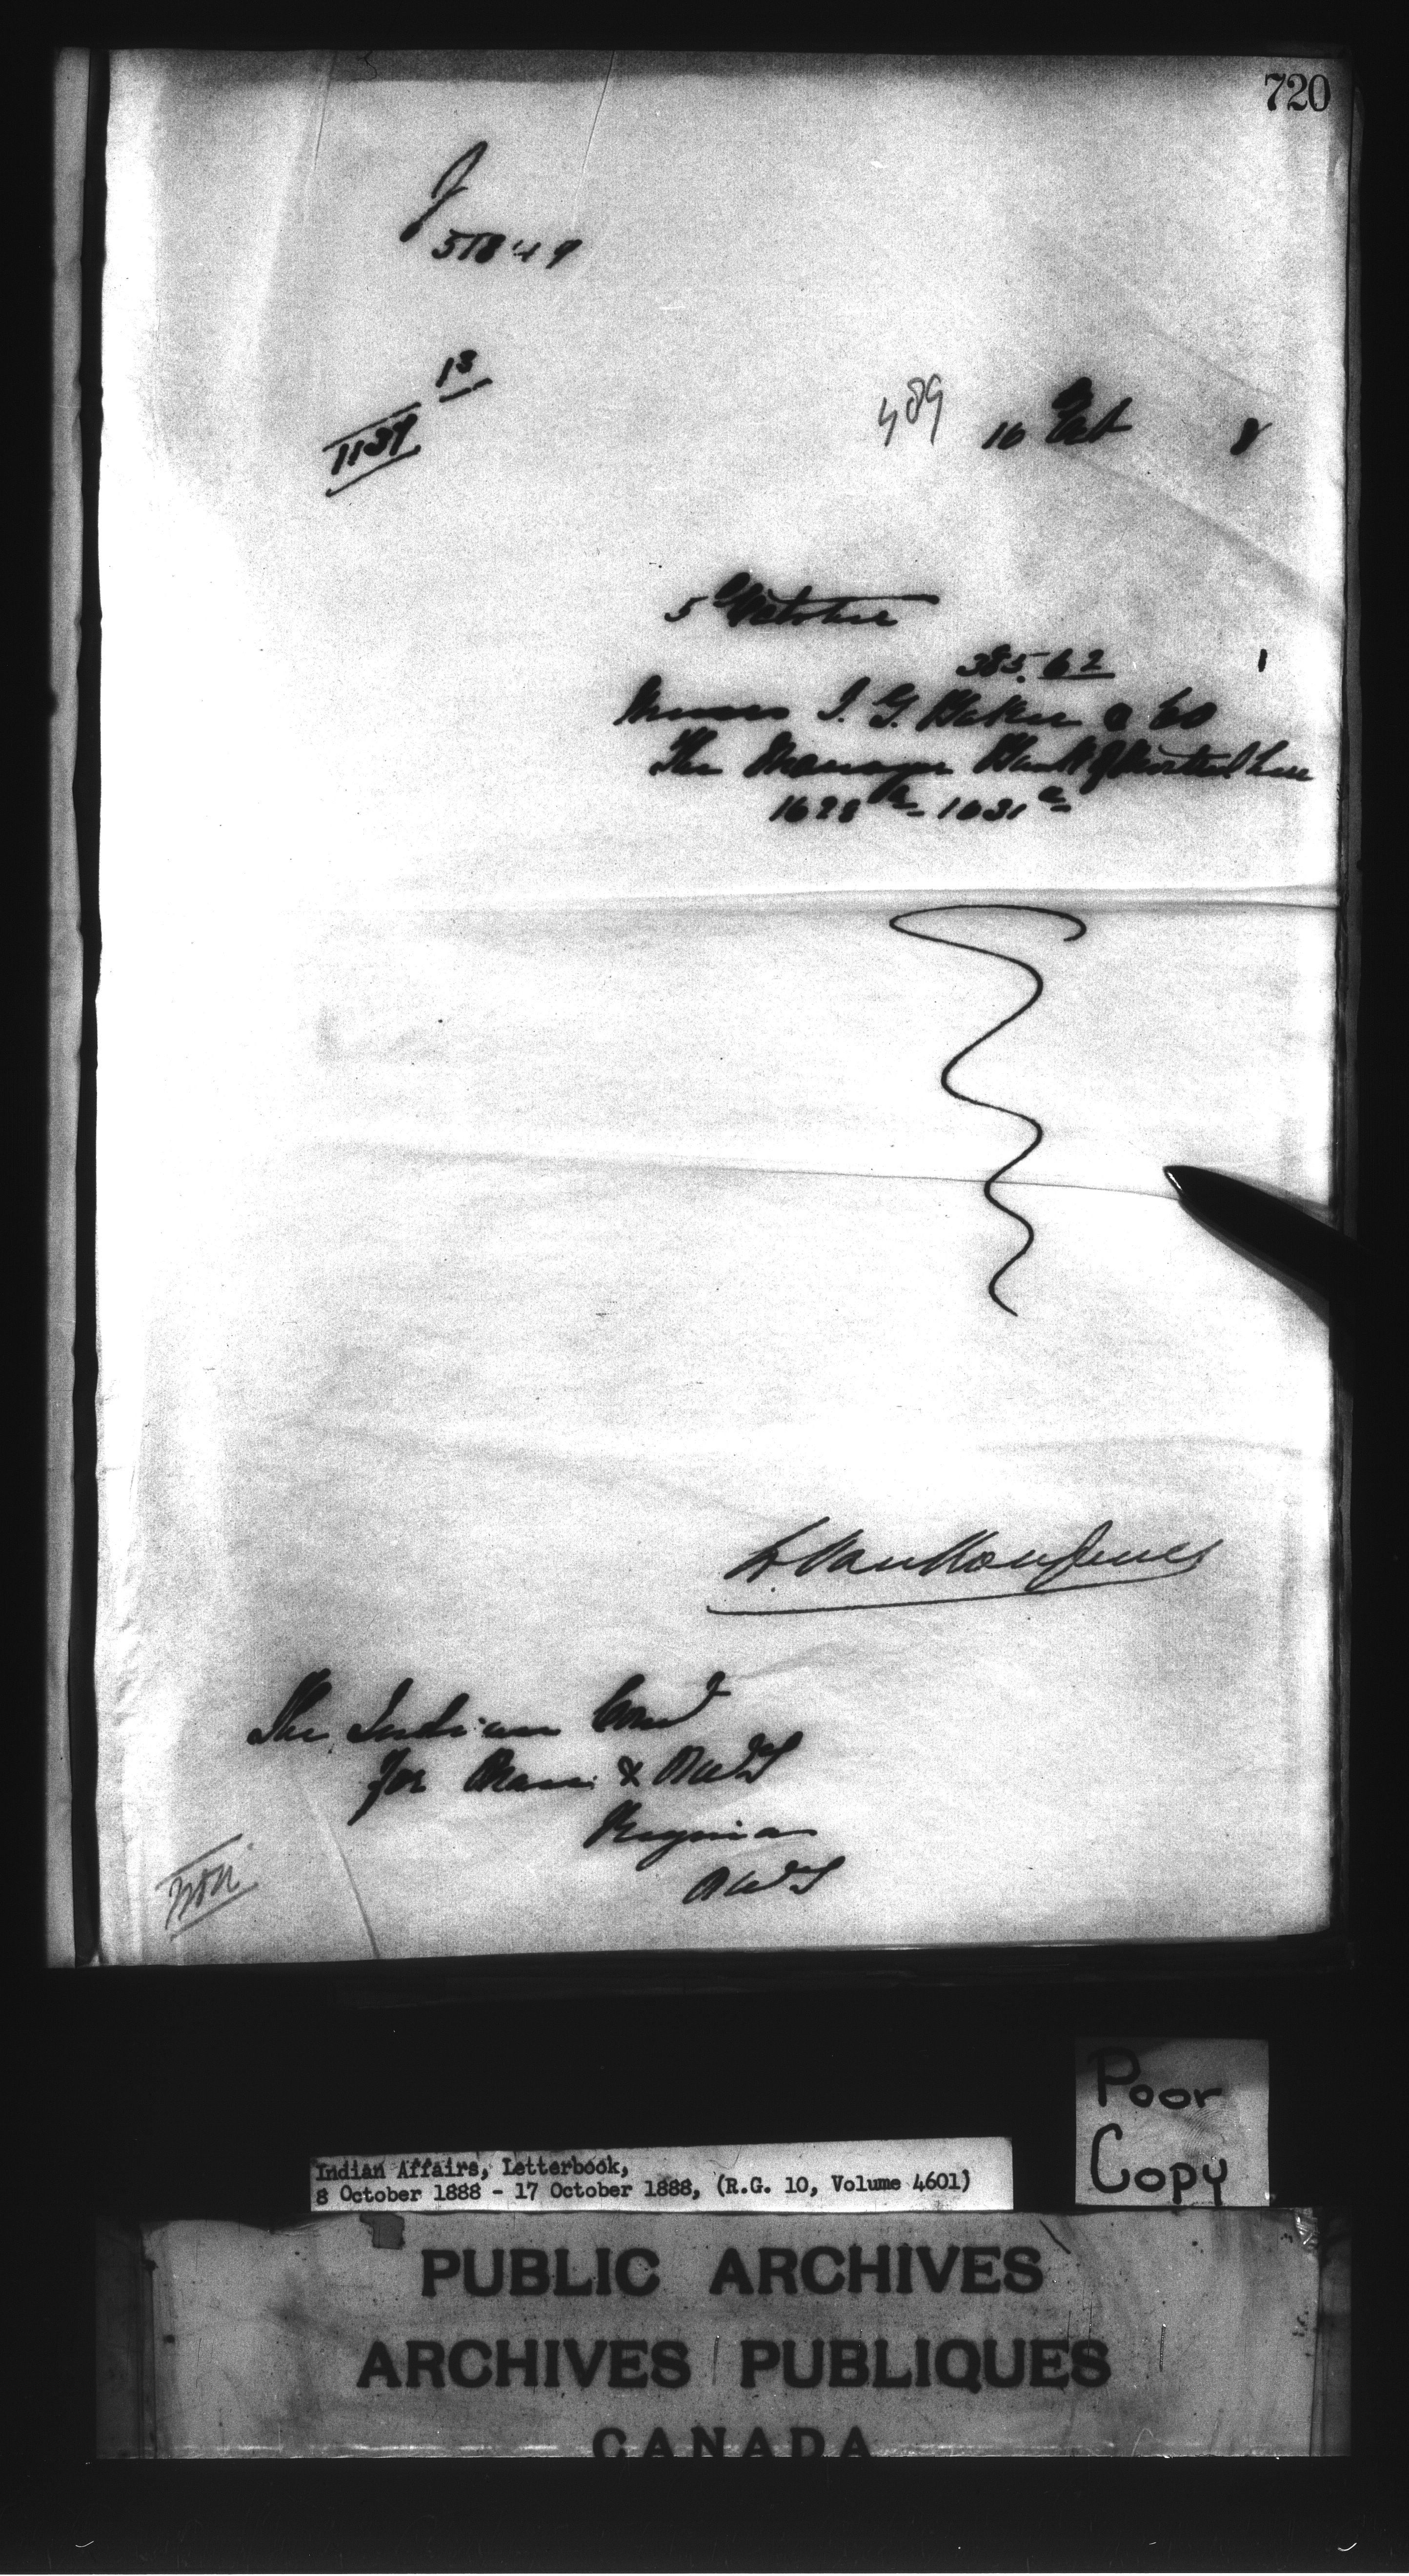 720
J
51849
13
1137
489 16 Oct 8
5 October
385.62 1
Messrs I. G. Baker & Co
The Manager Bank of Montreal here
1628 a - 1031 a
L. VanKoughnet
The Indian Comr
for Man. & N.W.T
Regina
N.W.T
Poor
Copy
Indian Affairs, Letterbook,
8 October 1888 - 17 October 1888, (R.G. 10, Volume 4601)
PUBLIC ARCHIVES
ARCHIVES PUBLIQUES
CANADA